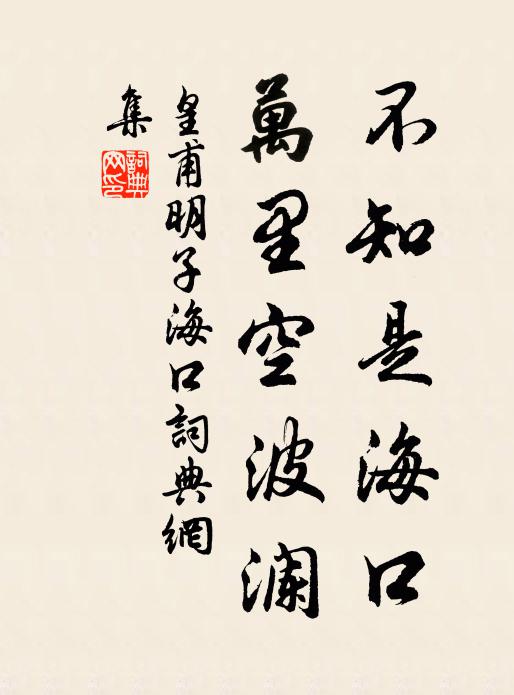 不知是海口
萬里空波瀾
皇甫明子海口詞典網
集
詞典网印